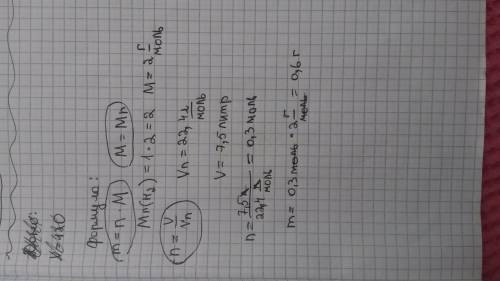 №420
формула:
m = n · M   M = Mn
Mn(H₂) = 1 · 2 = 2   M = 2 г/моль
n = V/Vn   Vn = 22,4 л/моль
V = 7,5 литр
n = 7,5 л / 22,4 л/моль = 0,3 моль
m = 0,3 моль · 2 г/моль = 0,6 г